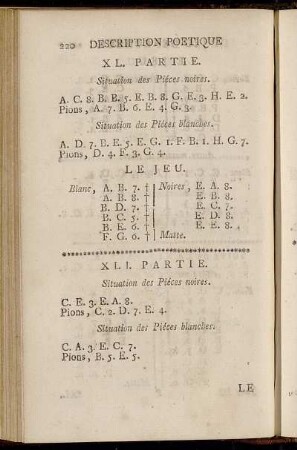 220 DESCRIPTION POETIQUE
XL. PARTIE.
Situation des Piéces noires.
A. C. 8. B. E. 5. E. B. 8. G. E. 3. H. E. 2.
Pions, A. 7. B. 6. E. 4. G. 3.
Situation des Piéces blanches.
A. D. 7. B. E. 5. E. G. 1. F. B. 1. H. G. 7.
Pions, D. 4. F. 3. G. 4.
LE JEU.
Blanc, A. B. 7. † Noires, E. A. 8.
A. B. 8. † E. A. 8.
B. D. 7. † E. C. 7.
B. C. 5. † E. D. 8.
B. E. 6. † E. E. 8.
F. G. 6. † Matte.
XLI. PARTIE.
Situation des Piéces noires.
C. E. 3. E. A. 8.
Pions, C. 2. D. 7. E. 4.
Situation des Piéces blanches.
C. A. 3. E. C. 7.
Pions, B. 5. E. 5.
LE